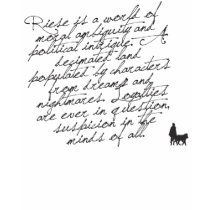 Riese is a world of
moral ambiguity and
political intrigue. A
decimated land
populated by characters
from dreams and
nightmares. Loyalties
are ever in question,
suspicion in the
minds of all.